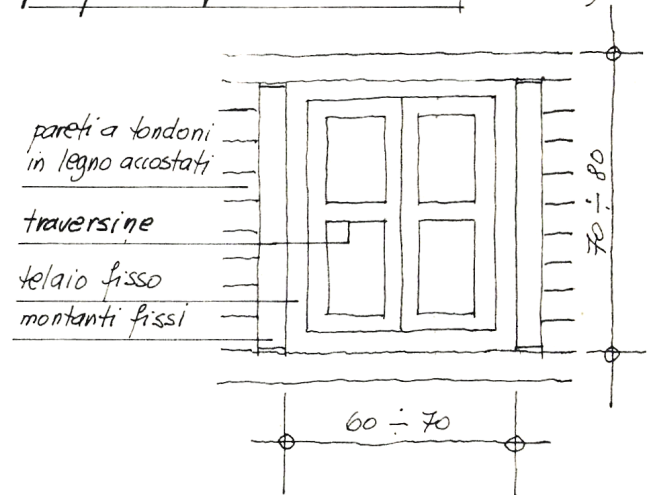 pareti a tondoni
in legno accostati
traversine
telaio fisso
montanti fissi
70 ÷ 80
60 ÷ 70